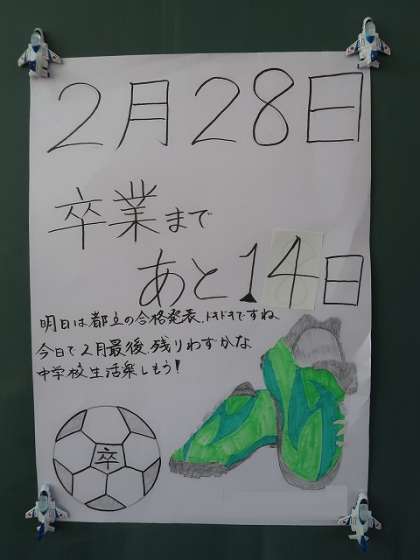 2月28日
卒業まで
あと14日
明日は都立の合格発表、ドキドキですね
今日で2月最後、残りわずかな
中学校生活楽しもう!
卒